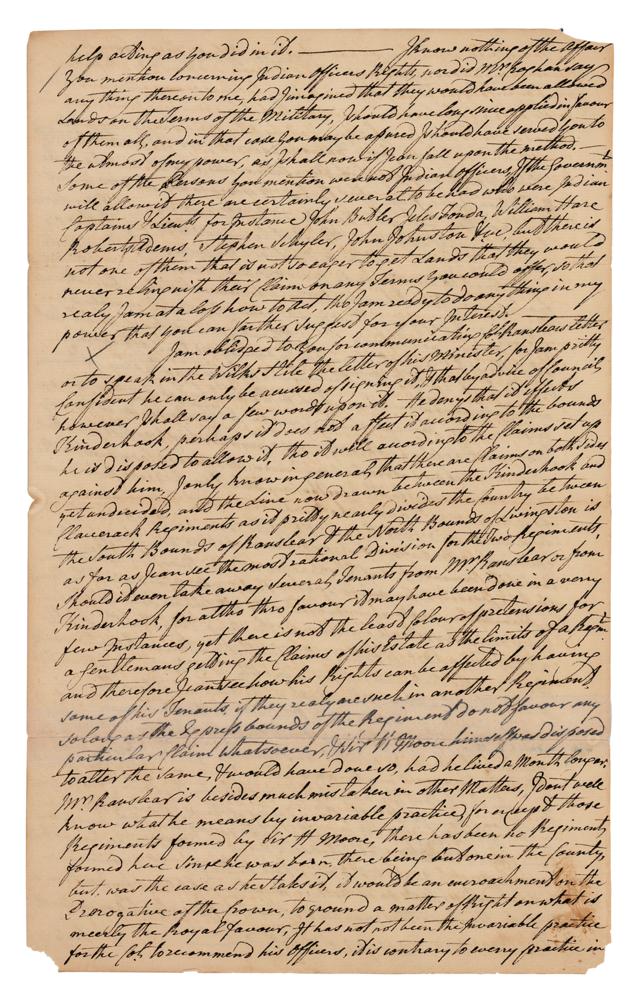 help acting as you did in it. ——— I know nothing of the Affair
you mention concerning Indian Officers Rights, nor did Mr. Roghan say
any thing thereon to me, had I imagined that they would have been allowed
Lands on the Terms of the Military, I should have long since applied in favour
of them all, and in that case you may be assured I should have served you to
the utmost of my power, as I shall now if I can fall upon the method. —
Some of the Persons you mention were not Indian Officers, If the Governmt.
will allow it there are certainly several to be heard who were Indian
Captains & Lieuts. for Instance John Butler, Jelles Fonda, William Hare
Robert Adems, Stephen Schyler, John Johnston &ca. but there is
not one of them that is not so eager to get Lands that they would
never relinquish their Claim on any Terms you could offer, so that
realy I am at a loss how to Act, tho I am ready to do any thing in my
power that you can farther suggest for your Interest. —
I am obliged to you for communicating Ranslears letter
or to speak in the Wilks stile the letter of his Minister, for I am pritty
Confident he can only be accused of signing it, & that by advice of Council,
however I shall say a few words upon it. He denys that it affects
Kinderhook, perhaps it does not affect it according to the bounds
he is disposed to allow it, tho it will according to the Claims set up
against him, I only know in general, that there are Claims on both sides
yet undecided, and the Line now drawn between the Kinderhook and
Claverack Regiments as it pritty nearly divides the Country between
the South Bounds of Ranslear & the North Bounds of Livingston is
as far as I can see the most rational division for the two Regiments,
Should it even take away several Tenants from Mr. Ranslear or from
Kinderhook, for altho thro favour it may have been done in a very
few Instances, yet there is not the least Colour of pretensions for
a Gentlemans getting the Claims of his Estate as the limits of a Regimt.
and therefore I cant see how his Rights can be affected by having
some of his Tenants if they realy are such in another Regiment.
so long as the Express bounds of the Regiment do not favour any
particular Claim whatsoever, & Sir H Moore himself was disposed
to alter the same, & would have done so, had he lived a Month longer.
Mr. Ranslear is besides much mistaken in other Matters, I dont well
know what he means by invariable practice, for except those
Regiments formed by Sir H Moore, there has been no Regiment
formed here since he was born, there being but one in the County,
but was the case as he states it, it would be an encroachment on the
Prerogative of the Crown, to ground a matter of Right on what is
meerly the Royal favour, It has not been the Invariable practice
for the Col. to recommend his Officers, it is contrary to every practice in